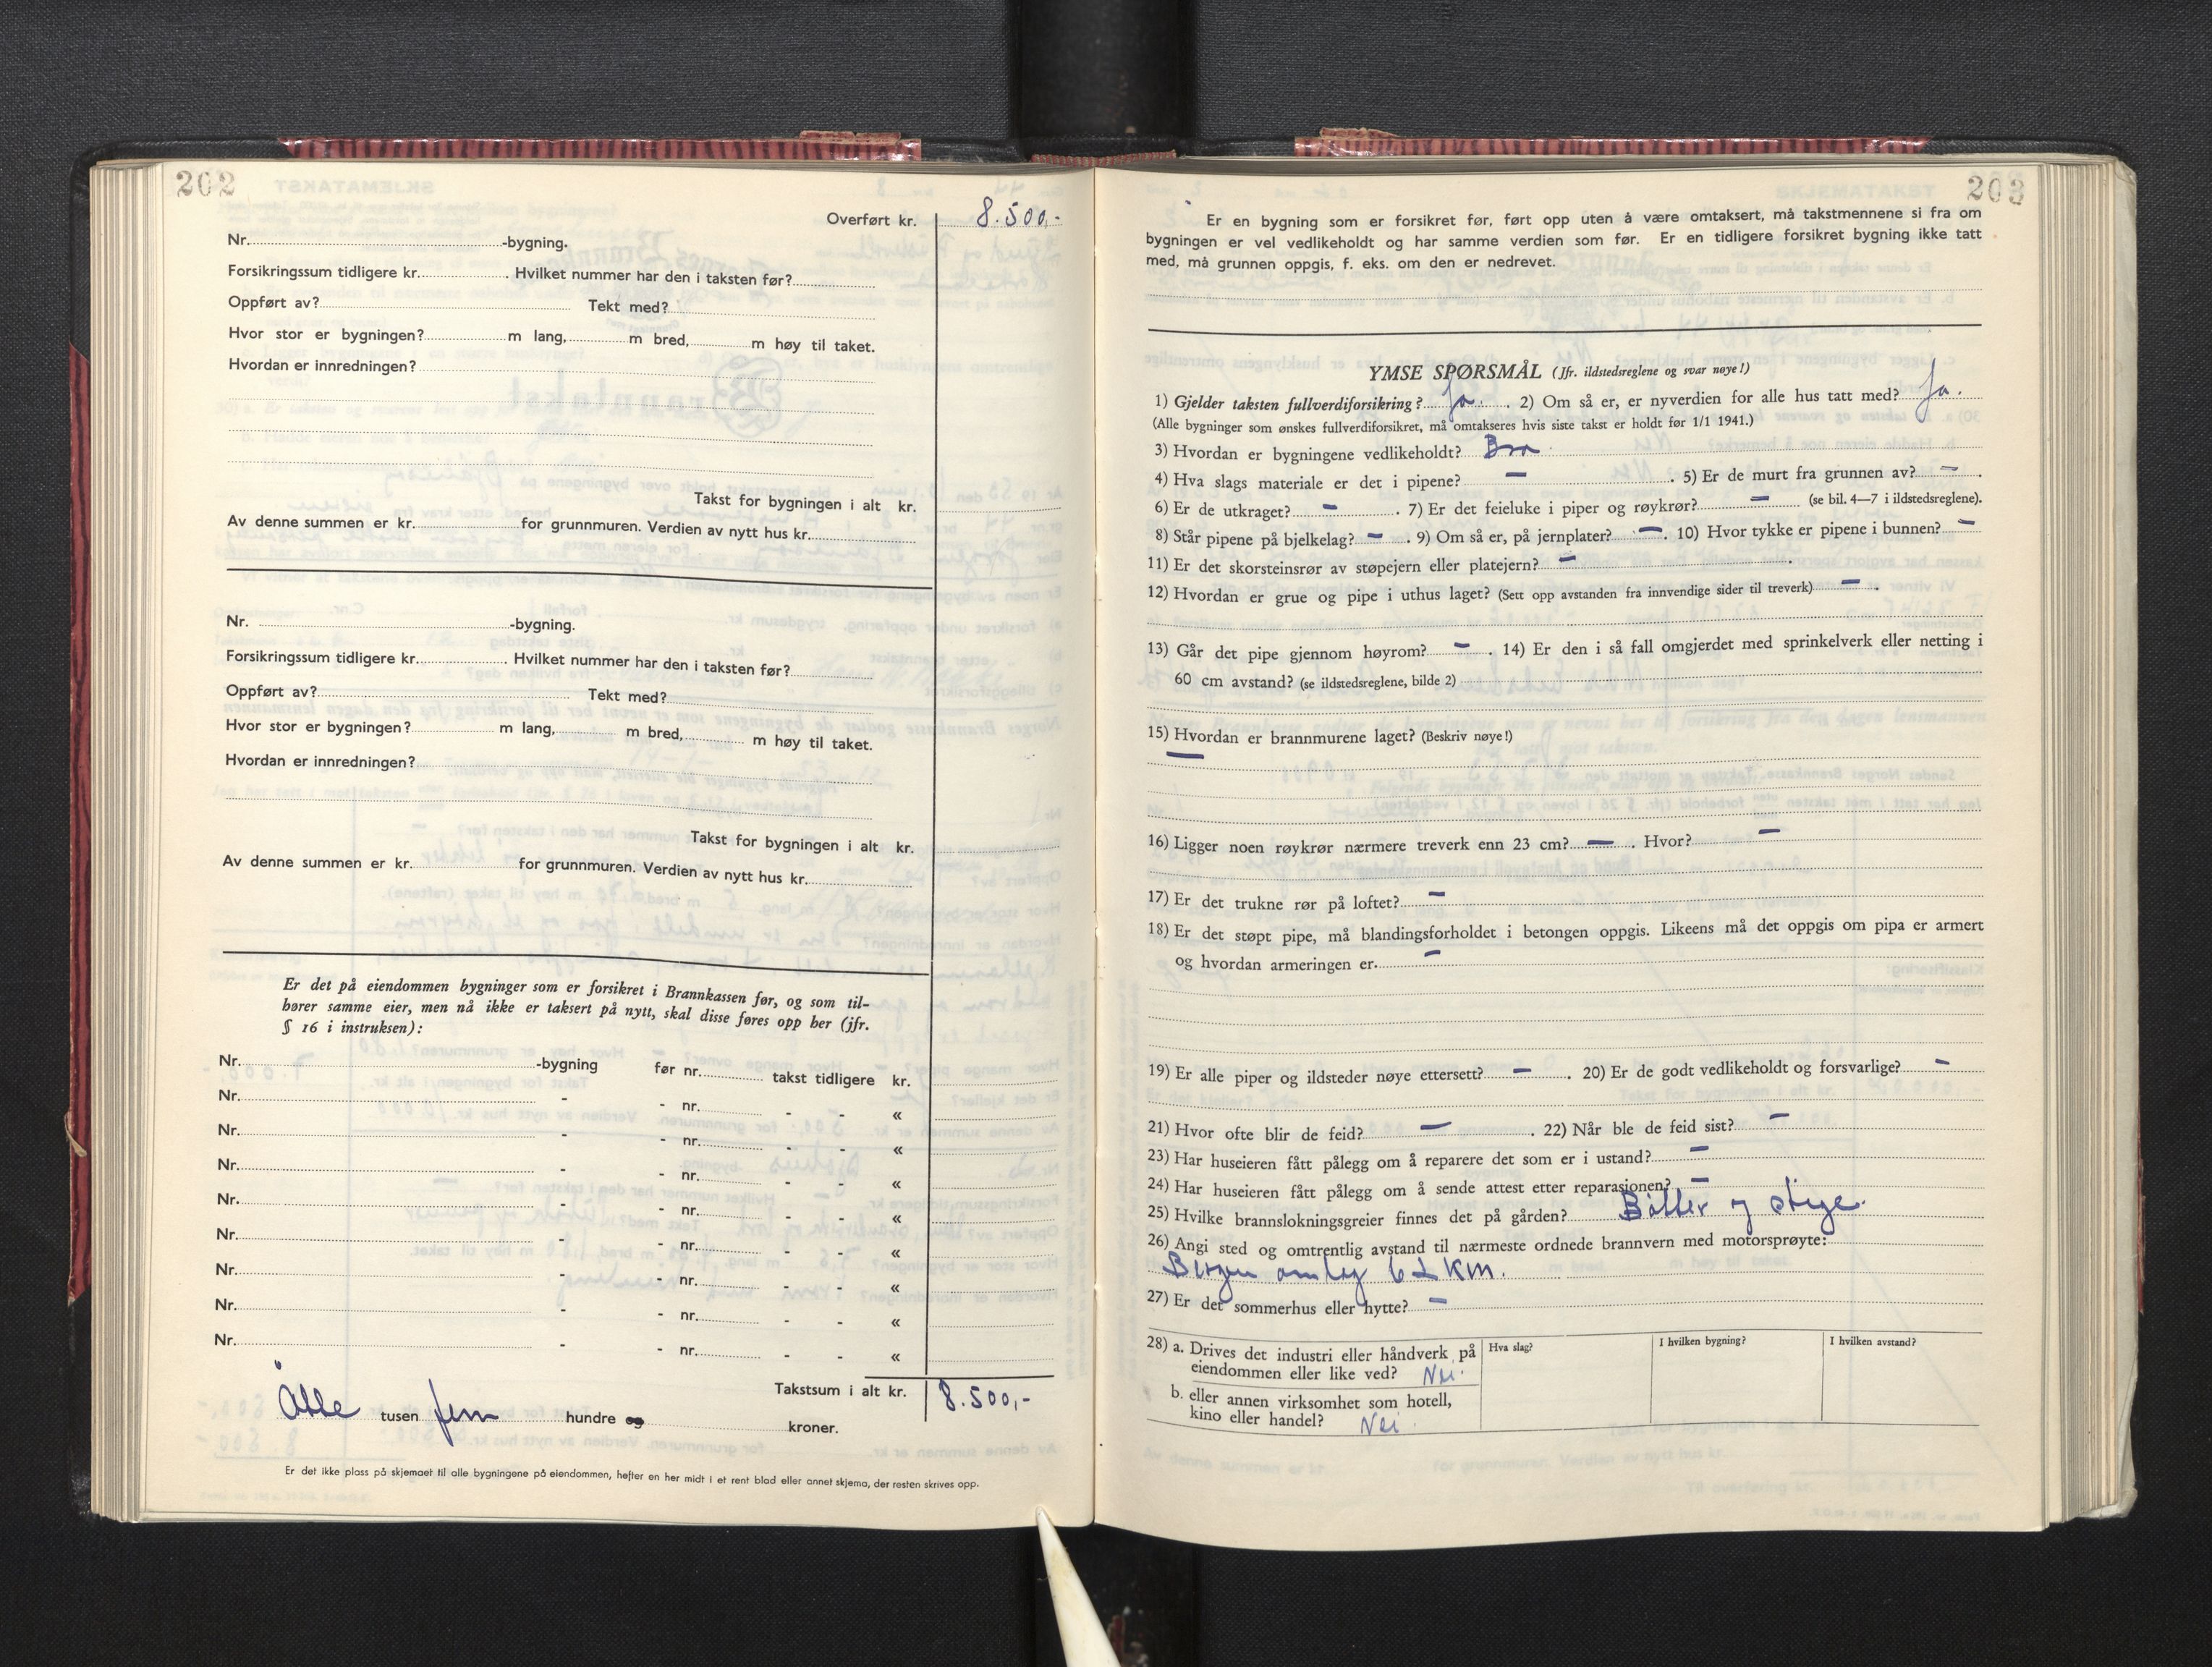 202
Overført kr. 8.500,-
Nr. -bygning.
Forsikringssum tidligere kr. . Hvilket nummer har den i taksten før?
Oppført av? Tekt med?
Hvor stor er bygningen? m lang, m bred, m høy til taket.
Hvordan er innredningen?
Takst for bygningen i alt kr.
Av denne summen er kr. for grunnmuren. Verdien av nytt hus kr.
Nr. -bygning.
Forsikringssum tidligere kr. . Hvilket nummer har den i taksten før?
Oppført av? Tekt med?
Hvor stor er bygningen? m lang, m bred, m høy til taket.
Hvordan er innredningen?
Takst for bygningen i alt kr.
Av denne summen er kr. for grunnmuren. Verdien av nytt hus kr.
Er det på eiendommen bygninger som er forsikret i Brannkassen før, og som til-
hører samme eier, men nå ikke er taksert på nytt, skal disse føres opp her (jfr.
§ 16 i instruksen):
Nr. -bygning før nr. takst tidligere kr.
Nr. - - nr. - - «
Nr. - - nr. - - «
Nr. - - nr. - - «
Nr. - - nr. - - «
Nr. - - nr. - - «
Nr. - - nr. - - «
Nr. - - nr. - - «
Nr. - - nr. - - «
Takstsum i alt kr. 8.500,-
Åtte tusen fem hundre og kroner.
Er det ikke plass på skjemaet til alle bygningene på eiendommen, hefter en her midt i et rent blad eller annet skjema, der resten skrives opp.
203
Er en bygning som er forsikret før, ført opp uten å være omtaksert, må takstmennene si fra om
bygningen er vel vedlikeholdt og har samme verdien som før. Er en tidligere forsikret bygning ikke tatt
med, må grunnen oppgis, f. eks. om den er nedrevet.
YMSE SPØRSMÅL (Jfr. ildstedsreglene og svar nøye!)
1) Gjelder taksten fullverdiforsikring? Ja. . 2) Om så er, er nyverdien for alle hus tatt med? Ja.
(Alle bygninger som ønskes fullverdiforsikret, må omtakseres hvis siste takst er holdt før 1/1 1941.)
3) Hvordan er bygningene vedlikeholdt? Bra
4) Hva slags materiale er det i pipene? — . 5) Er de murt fra grunnen av? — .
6) Er de utkraget? — . 7) Er det feieluke i piper og røykrør? — (se bil. 4—7 i ildstedsreglene).
8) Står pipene på bjelkelag? — . 9) Om så er, på jernplater? — . 10) Hvor tykke er pipene i bunnen? —
11) Er det skorsteinsrør av støpejern eller platejern? — .
12) Hvordan er grue og pipe i uthus laget? (Sett opp avstanden fra innvendige sider til treverk) — .
13) Går det pipe gjennom høyrom? — . 14) Er den i så fall omgjerdet med sprinkelverk eller netting i
60 cm avstand? (se ildstedsreglene, bilde 2)
15) Hvordan er brannmurene laget? (Beskriv nøye!)
—
16) Ligger noen røykrør nærmere treverk enn 23 cm? — . Hvor? —
17) Er det trukne rør på loftet? —
18) Er det støpt pipe, må blandingsforholdet i betongen oppgis. Likeens må det oppgis om pipa er armert
og hvordan armeringen er. —
19) Er alle piper og ildsteder nøye ettersett? — . 20) Er de godt vedlikeholdt og forsvarlige? —
21) Hvor ofte blir de feid? — . 22) Når ble de feid sist? —
23) Har huseieren fått pålegg om å reparere det som er i ustand? —
24) Har huseieren fått pålegg om å sende attest etter reparasjonen? —
25) Hvilke brannslokningsgreier finnes det på gården? Bøtter og stige.
26) Angi sted og omtrentlig avstand til nærmeste ordnede brannvern med motorsprøyte:
Bergen omlag km.
27) Er det sommerhus eller hytte? —
28) a. Drives det industri eller håndverk på
eiendommen eller like ved? Nei.
Hva slag? I hvilken bygning? I hvilken avstand?
b. eller annen virksomhet som hotell,
kino eller handel? Nei.